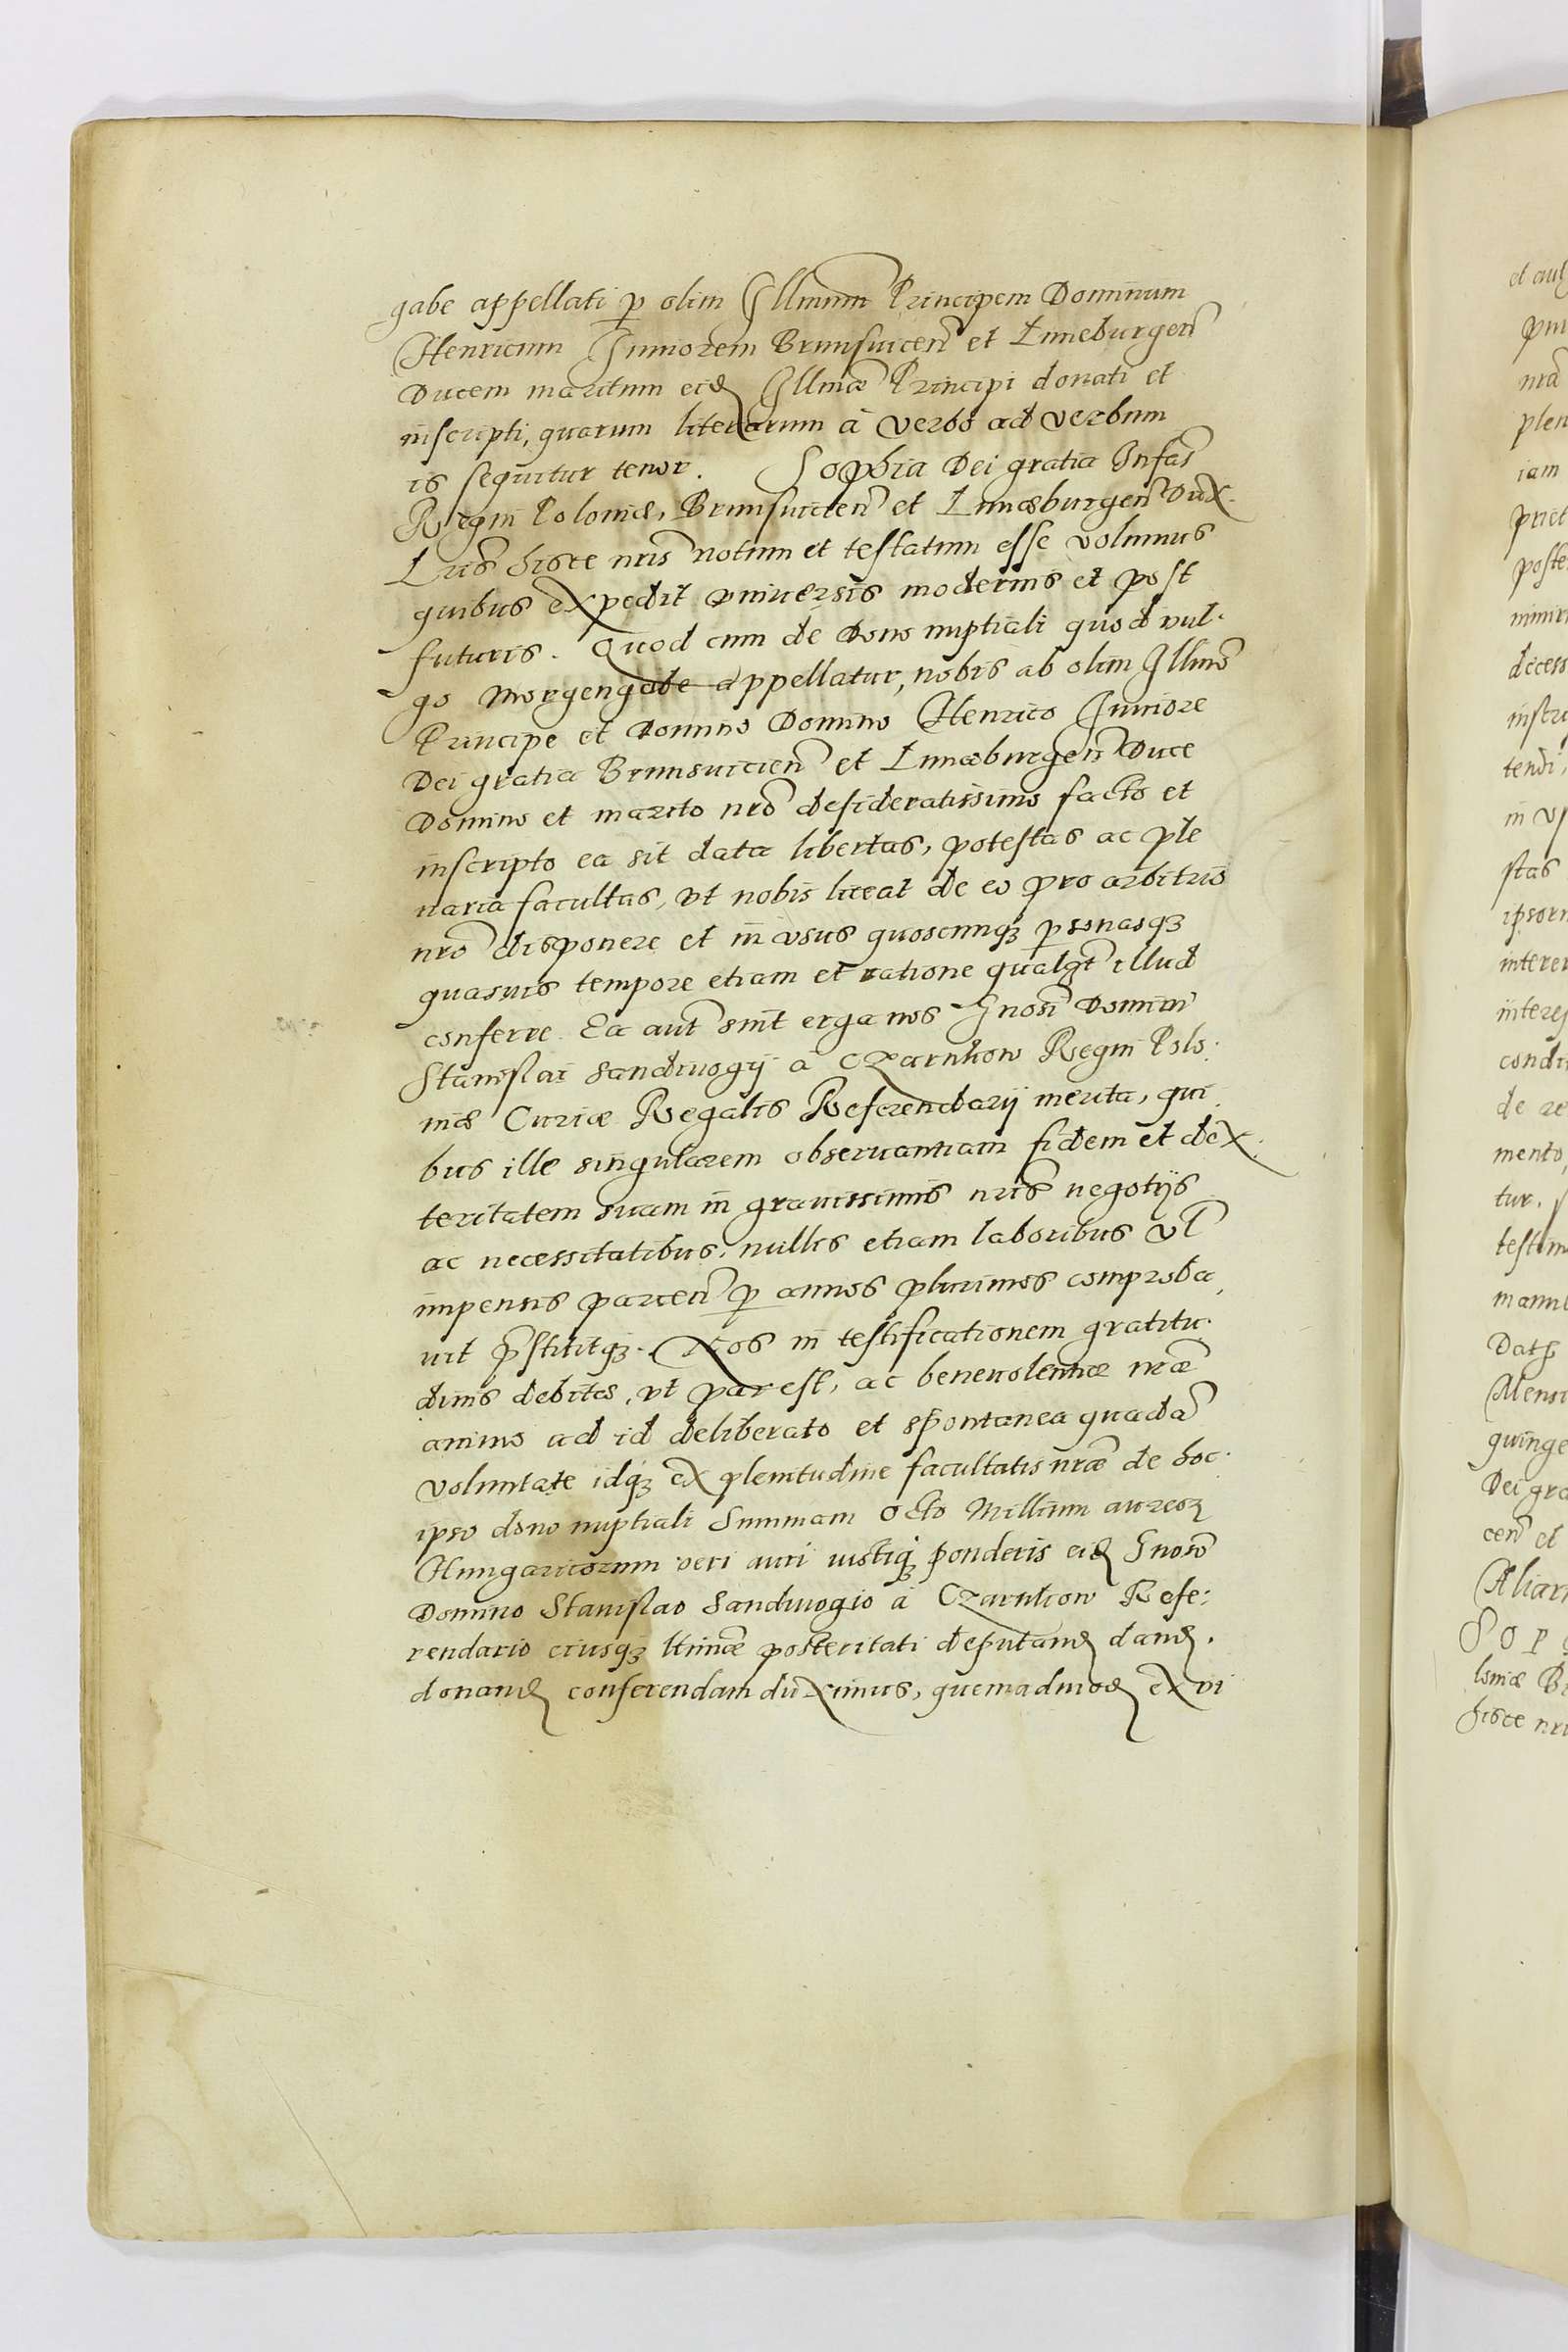 gabe appellati p olim Illmum Principem Dominum
Henricum Iuniorem Brunsuicen et Luneburgen
Ducem maritum eid Illmæ Principi donati et
inscripti, quarum literarum à verbo ad verbum
is sequitur tenor. Sophia Dei gratia Infas
Regni Poloniæ, Brunsuicien et Lunæburgen Dux.
Lris hisce nris notum et testatum esse volumus
quibus expedit vniuersis modernis et post
futuris. Quod cum de Dono nuptiali quod vul-
go Morgengabe appellatur, nobis ab olim Illmo
Principe et Domino Domino Henrico Iuniore
Dei gratia Brunsuicien et Lunæburgen Duce
Domino et marito nro desideratissimo facto et
inscripto ea sit data libertas, potestas ac ple
naria facultas, vt nobis liceat de eo pro arbitrio
nro disponere et in vsus quoscunqꝫ psonasqꝫ
quasuis tempore etiam et ratione qualꝫt illud
conferre. Ea aut sint erga nos Gnosi Domini
Stanislai Sandiuogij à Czarnkow Regni Polo:
niæ Curiæ Regalis Referendarij merita, qui
bus ille singularem obseruantiam fidem et dex.
teritatem suam in grauissimis nris negotijs
ac necessitatibus, nullis etiam laboribus vl
impensis parcen p annos plurimos comproba
uit pstititqꝫ. Nos in testificationem gratitu-
dinis debitæ, vt par est, ac beneuolentiæ nræ
animo ad id deliberato et spontanea quadã
voluntate idqꝫ ex plenitudine facultatis nræ de hoc
ipso dono nuptiali Summam Octo Millium aureoꝝ
Hungaricorum veri auri iustiqꝫ ponderis eid Gnoso
Domino Stanislao Sandiuogio à Czarnkow Refe:
rendario eiusqꝫ ltimæ posteritati deputand dand.
donand conferendam duximus, quemadmod ex vi